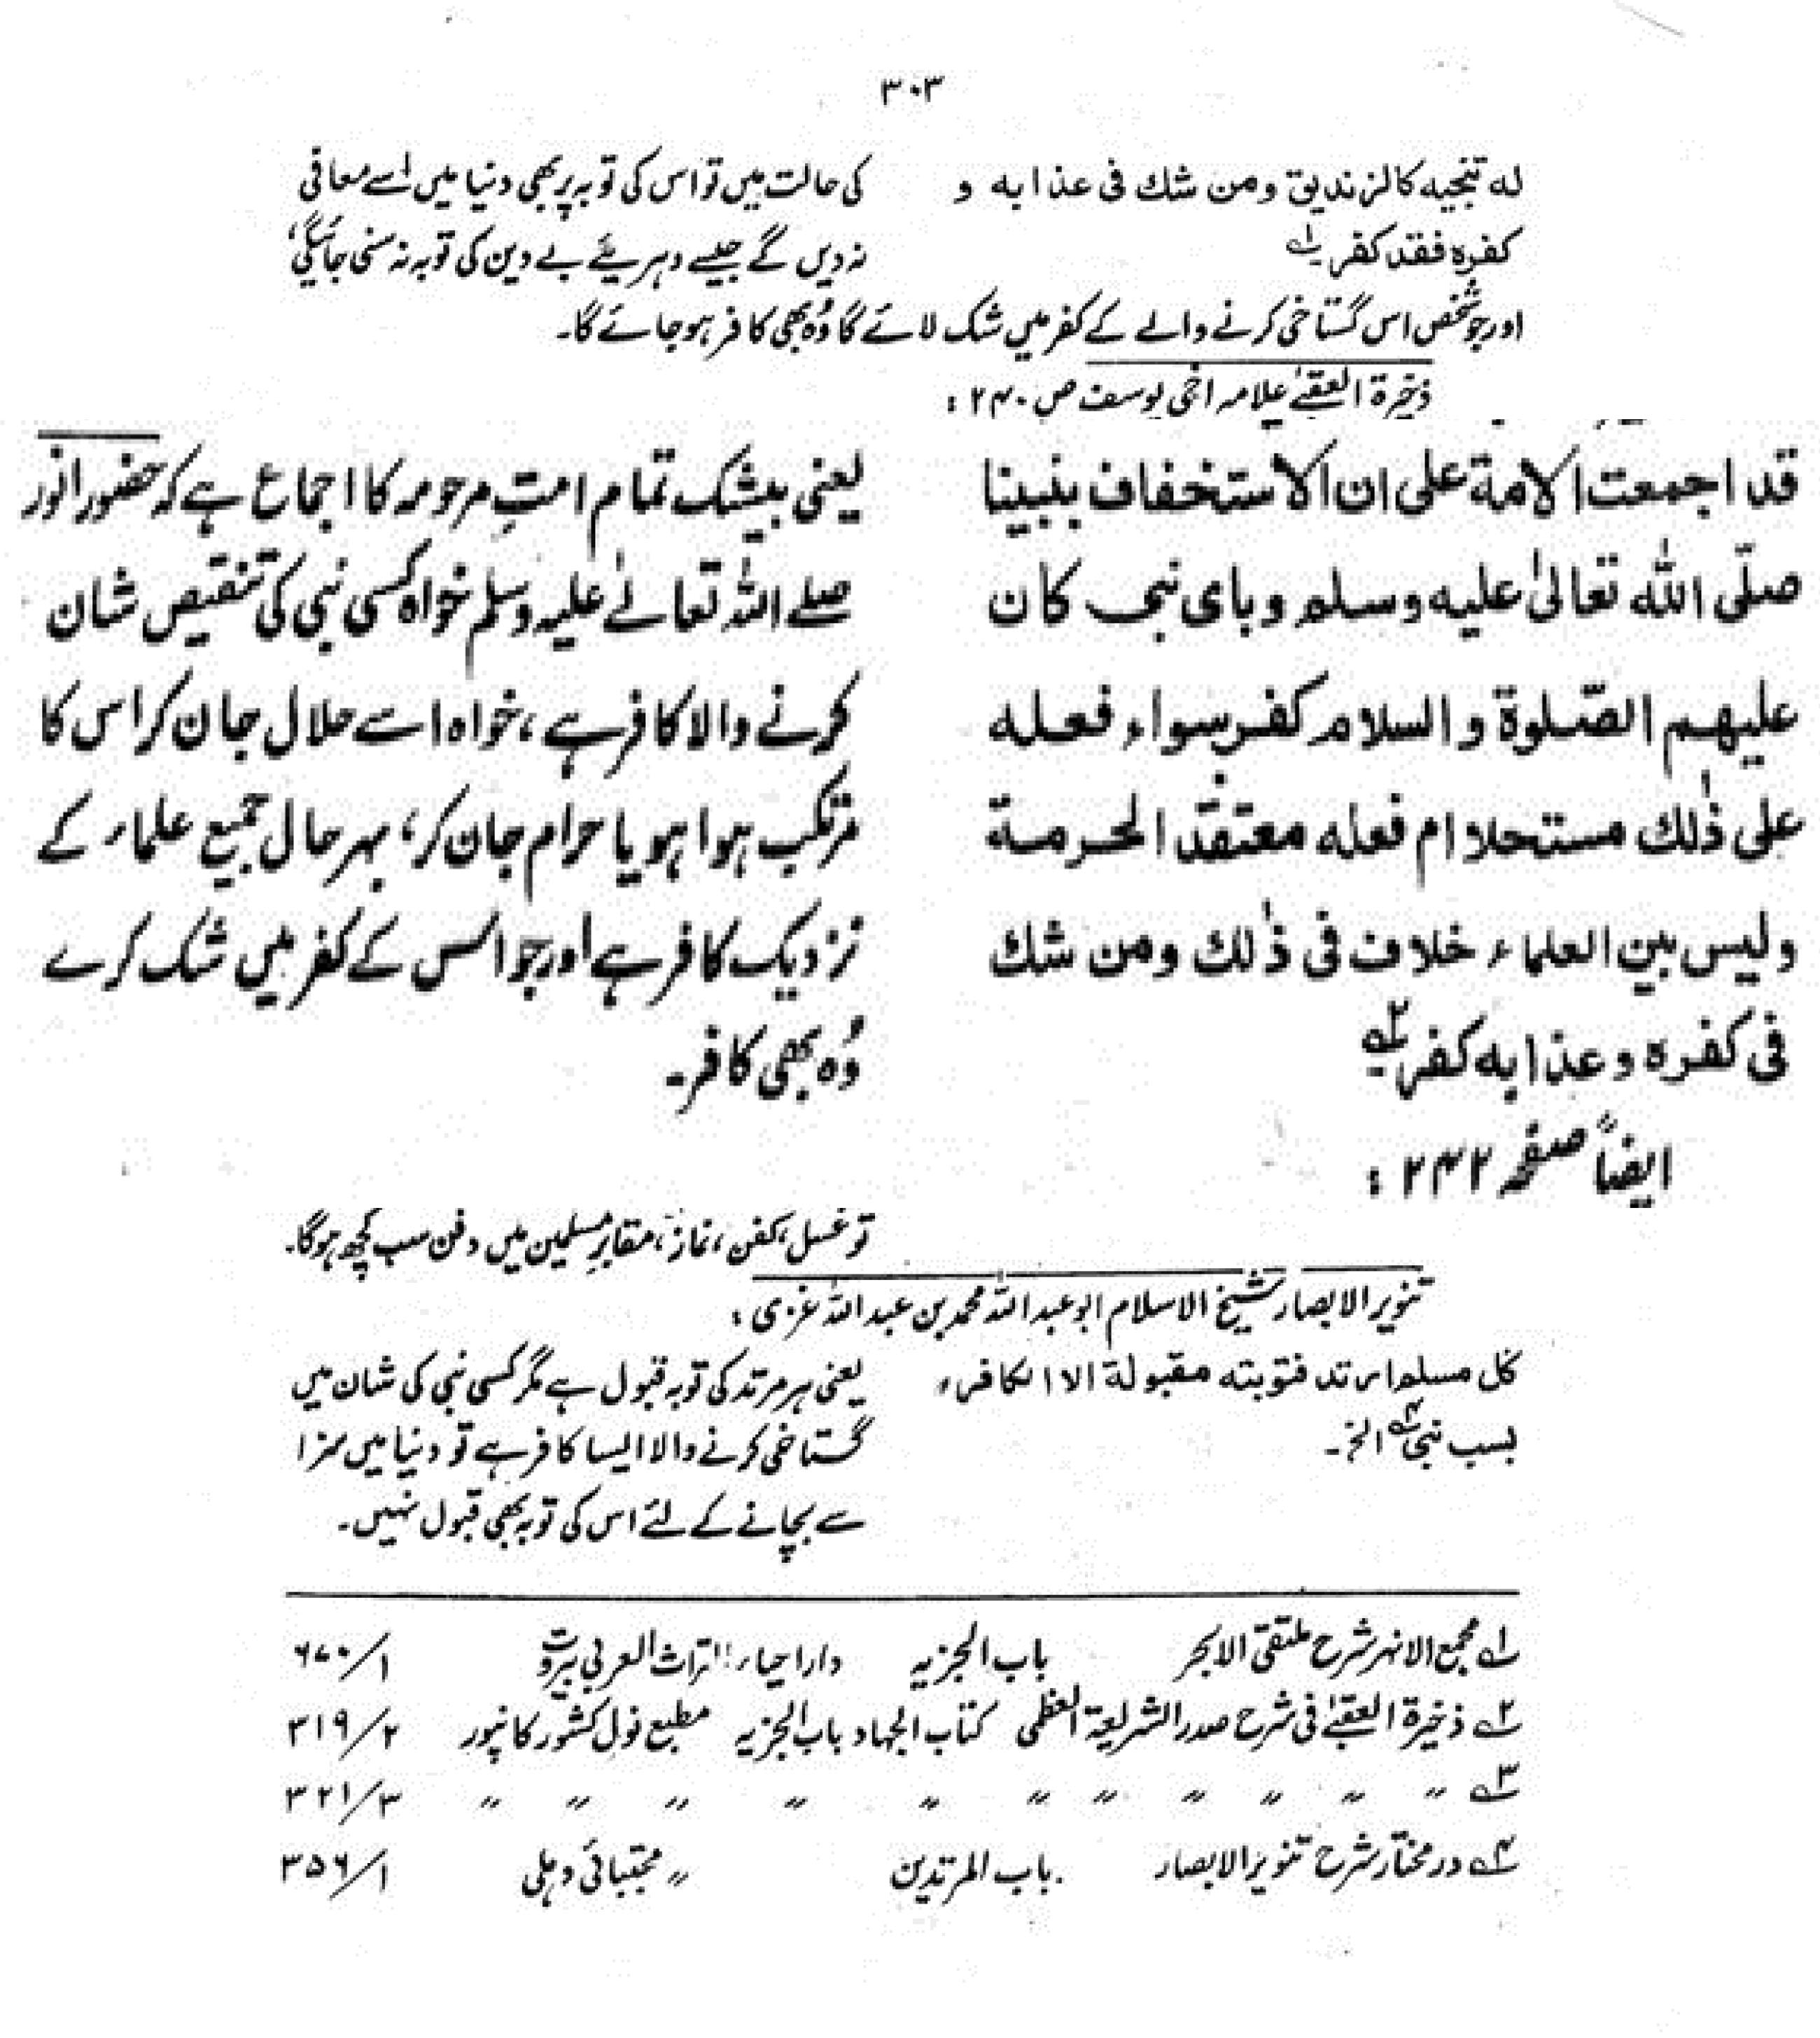 ٣٠٣
له تنجيه كالزنديق ومن شك فى عذابه و
كفره فقد كفر ؎۱
کی حالت میں تو اس کی توبہ پر بھی دنیا میں اسے معافی
نہ دیں گے جیسے دہریے بے دین کی توبہ نہ سنی جائیگی،
اور جو شخص اس گستاخی کرنے والے کے کفر میں شک لائے گا وُہ بھی کافر ہو جائے گا۔
ذخیرۃ العقبےٰ علامہ اخی یوسف ص ۲۴۰ :
قد اجمعت الامة على ان الاستخفاف بنبينا
صلّى الله تعالىٰ عليه وسلم وباى نبى كان
عليهم الصّلوة والسلام كفر سواء فعله
على ذٰلك مستحلا ام فعله معتقدا لحرمة
وليس بين العلماء خلاف فى ذٰلك ومن شك
فى كفره وعذابه كفر ؎۲
یعنی بیشک تمام امتِ مرحومہ کا اجماع ہے کہ حضور انور
صلے اللہ تعالےٰ علیہ وسلم خواہ کسی نبی کی تنقیص شان
کرنے والا کافر ہے، خواہ اسے حلال جان کر اس کا
مرتکب ہوا ہو یا حرام جان کر، بہر حال جمیع علماء کے
نزدیک کافر ہے اور جو اس کے کفر میں شک کرے
وُہ بھی کافر۔
ایضاً صفحہ ۲۴۲ :
تو غسل، کفن، نماز، مقابر مسلمین میں دفن سب کچھ ہوگا۔
تنویر الابصار شیخ الاسلام ابو عبد اللہ محمد بن عبد اللہ غزی :
كل مسلم ارتد فتوبته مقبولة الا الكافر،
بسب نبى ؎۴ الخ۔
یعنی ہر مرتد کی توبہ قبول ہے مگر کسی نبی کی شان میں
گستاخی کرنے والا ایسا کافر ہے تو دنیا میں سزا
سے بچانے کے لئے اس کی توبہ بھی قبول نہیں۔
؎۱ مجمع الانہر شرح ملتقی الابحر باب الجزیہ دار احیاء التراث العربی بیروت ۱/۶۷۰
؎۲ ذخیرۃ العقبےٰ فی شرح صدر الشریعۃ العظمی کتاب الجہاد باب الجزیہ مطبع نولکشور کانپور ۲/۳۱۹
؎۳ " " " " " " " " " " " ۳/۳۲۱
؎۴ درمختار شرح تنویر الابصار باب المرتدین " مجتبائی دہلی ۱/۳۵۶